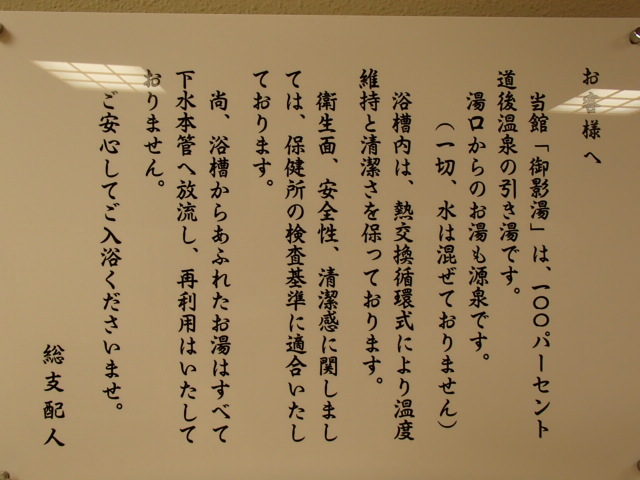 お客様へ
当館「御影湯」は、一〇〇パーセント
道後温泉の引き湯です。
湯口からのお湯も源泉です。
（一切、水は混ぜておりません）
浴槽内は、熱交換循環式により温度
維持と清潔さを保っております。
衛生面、安全性、清潔感に関しまし
ては、保健所の検査基準に適合いたし
ております。
尚、浴槽からあふれたお湯はすべて
下水本管へ放流し、再利用はいたして
おりません。
ご安心してご入浴くださいませ。
総支配人